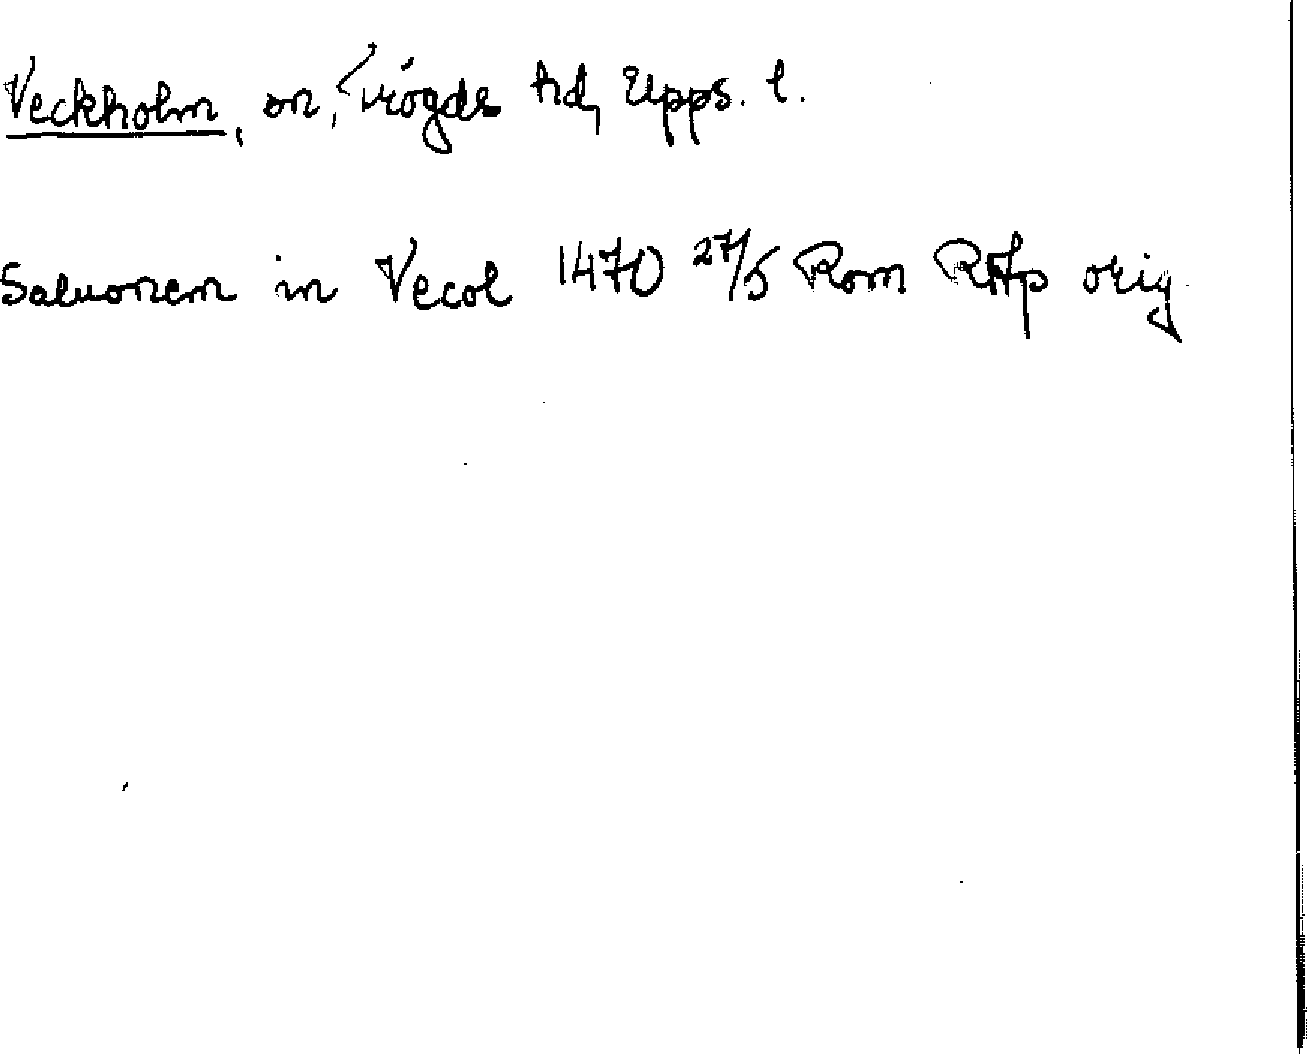 Veckholm, sn, Trögds hd, Upps. l.
Saluonem in Vecol 1470 27/5 Rom RAp orig